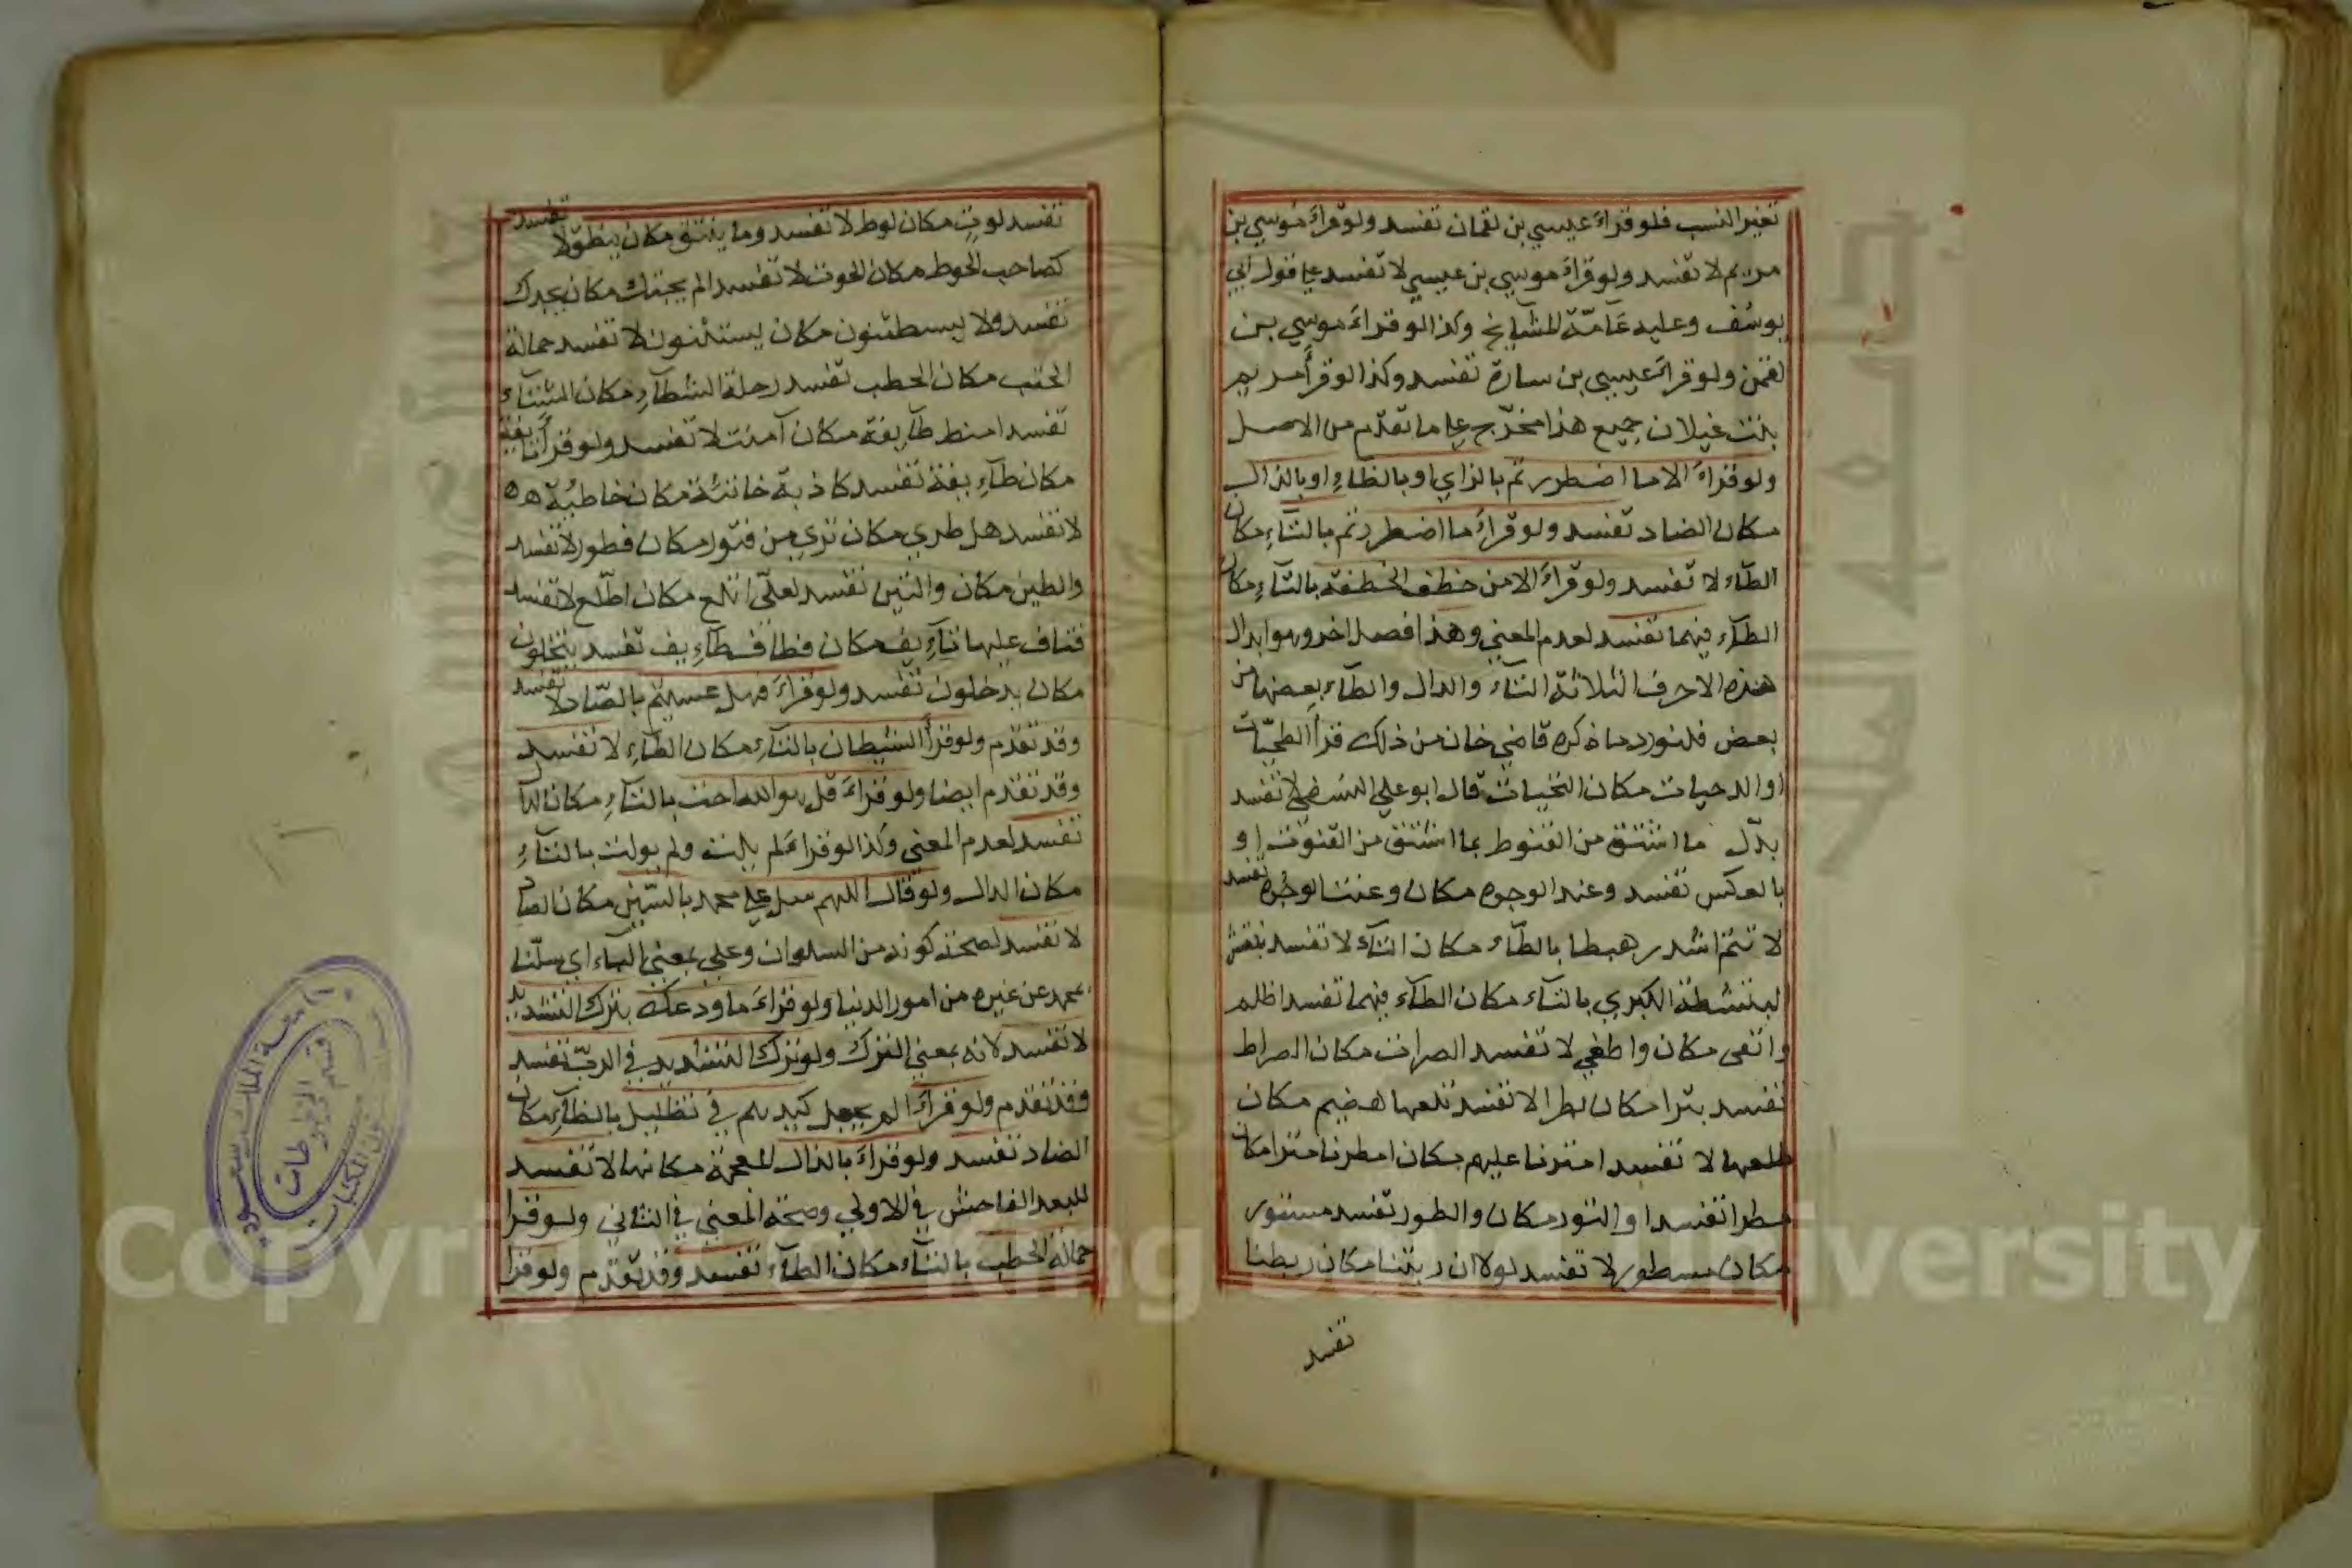 تغير النسب فلو قراءَ عيسي بن لقمان تفسد ولو قراءَ موسي بن
مريم لا تفسد ولو قراءَ موسي بن عيسي لا تفسد علي قول ابي
يوسف وعليه عامّة المشايخ وكذا لو قراءَ موسي بن
لقمن ولو قراءَ عيسي بن سارة تفسد وكذا لو قرأ مريم
بنت غيلان جميع هذا مخرّج علي ما تقدّم من الاصل
ولو قراءَ الاما اضطررتم بالزاي او بالظاءِ او بالذال
مكان الضاد تفسد ولو قراءَ ما اضطررتم بالتاءِ مكان
الطاء لا تفسد ولو قراءَ الا من خطف الخطفة بالتاءِ مكان
الطاء فيهما تفسد لعدم المعني وهذا فصل اخر وهو ابدال
هذه الاحرف الثلاثة التاء والدال والطاء بعضها من
بعض فلنورد ما ذكره قاضي خان من ذلك قرأ الطحيّات
او الدحيات مكان التحيات قال ابو علي النسفي لا تفسد
بدّل ما اشتق من القنوط بما اشتق من القنوت او
بالعكس تفسد وعند الوجوه مكان وعنت الوجوه تفسد
لا تتخ اشد رهبطا بالطاء مكان التاء لا تفسد
البتشطة الكبري بالتاء مكان الطاء فيهما تفسد اظلم
واتغى مكان واطغي لا تفسد الصرات مكان الصراط
تفسد بترا مكان بطرا لا تفسد تلعها هضيم مكان
طلعها لا تفسد امترنا عليهم مكان امطرنا مترا مكان
مطرا تفسد او التور مكان والطور تفسد مستور
مكان مسطور لا تفسد لولا ان ربتنا مكان ربطنا
تفسد
تفسد لوت مكان لوط لا تفسد وما ينتق مكان ينطق لا تفسد
كصاحب الحوط مكان الحوت لا تفسد الم يجتك مكان يجدك
تفسد ولا يسطثنون مكان يستثنون لا تفسد حمالة
الحتب مكان الحطب تفسد رحلة الشطاءِ مكان الشتاء
تفسد امنط طايفة مكان آمنت لا تفسد ولو قرأ تايفة
مكان طاءِيفة تفسد كاذبة خاتئة مكان خاطئة
لا تفسد هل طري مكان تري من فتور مكان فطور لا تفسد
والطين مكان والتين تفسد لعلّي اتلع مكان اطلع لا تفسد
فتاف عليها تاءِيف مكان فطاف طاءِيف تفسد يتخلون
مكان يدخلون تفسد ولو قراءَ فهل عسيتم بالصّاد لا تفسد
وقد تقدم ولو قرأ الشيطان بالتاءِ مكان الطاءِ لا تفسد
وقد تقدم ايضا ولو قراءَ قل هو الله احت بالتاءِ مكان الدال
تفسد لعدم المعني وكذا لو قراءَ لم يلت ولم يولت بالتاءِ
مكان الدال ولو قال اللهم سل علي محمد بالسّين مكان الصاد
لا تفسد لصحة كونه من السلوان وعلي بمعني الباء اي سلّنا
بمحمد عن غيره من امور الدنيا ولو قراءَ ما ودعك بترك التشديد
لا تفسد لانه بمعني الترك ولو ترك التشديد في الربّ تفسد
وقد تقدم ولو قراءَ الم يجعل كيدهم في تظليل بالظاءِ مكان
الضاد تفسد ولو قراءَ بالذال المعجمة مكانها لا تفسد
للبعد الفاحش في الاولي وصحة المعني في الثاني ولو قرا
حمالة الحطب بالتاء مكان الطاء تفسد وقد تقدم ولو قرا
جامعة الملك سعود
قسم المخطوطات
Copyright © King Saud University